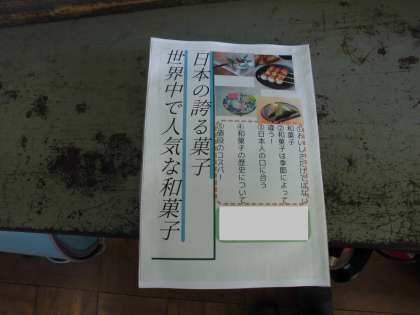 日本の誇る菓子
世界中で人気な和菓子
①おいしいだけではない
和菓子
②和菓子は季節によって
違う！
③日本人の口に合う
④和菓子の歴史について
⑤値段のコスパ！